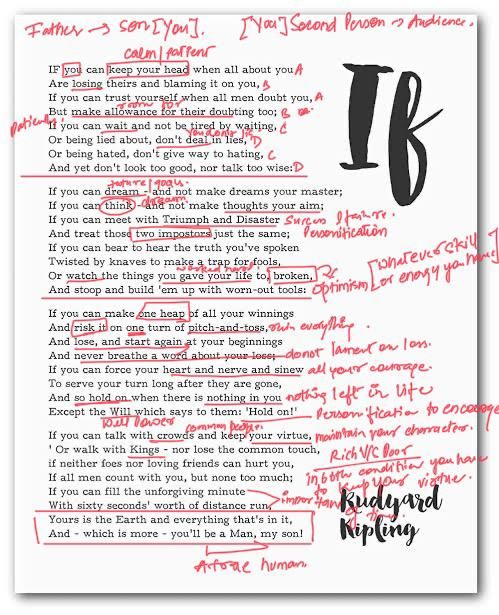 Father → son [You]. [You] Second Person → Audience.
calm/patient
IF you can keep your head when all about you A
Are losing theirs and blaming it on you, B
If you can trust yourself when all men doubt you, A
room for
But make allowance for their doubting too; B
Patiently
If you can wait and not be tired by waiting, C
you don't lie
Or being lied about, don't deal in lies, D
Or being hated, don't give way to hating, C
And yet don't look too good, nor talk too wise: D
future/goals
If you can dream - and not make dreams your master;
dream
If you can think - and not make thoughts your aim;
If you can meet with Triumph and Disaster Success / failure.
And treat those two impostors just the same; Personification
If you can bear to hear the truth you've spoken
Twisted by knaves to make a trap for fools,
worked hard
Or watch the things you gave your life to, broken, [whatever skill
And stoop and build 'em up with worn-out tools: optimism or energy you have]
If you can make one heap of all your winnings
And risk it on one turn of pitch-and-toss, everything.
And lose, and start again at your beginnings
And never breathe a word about your loss; do not lament on loss.
If you can force your heart and nerve and sinew all your courage.
To serve your turn long after they are gone,
And so hold on when there is nothing in you nothing left in life
Except the Will which says to them: 'Hold on!' Personification to encourage
Will Power
common people.
If you can talk with crowds and keep your virtue, maintain your character.
' Or walk with Kings - nor lose the common touch, Rich V/C Poor
if neither foes nor loving friends can hurt you, in both condition you have
If all men count with you, but none too much; to keep your virtue.
If you can fill the unforgiving minute
With sixty seconds' worth of distance run, importance of time.
Yours is the Earth and everything that's in it,
And - which is more - you'll be a Man, my son!
A true human.
If
Rudyard
Kipling